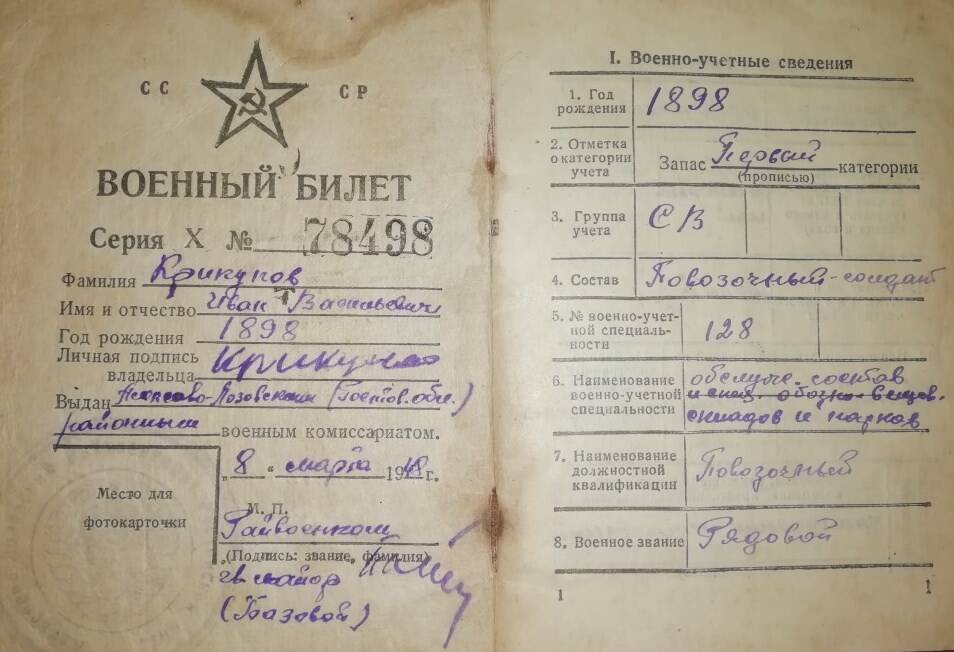 СС СР
ВОЕННЫЙ БИЛЕТ
Серия X № 78498
Фамилия Крикунов
Имя и отчество Иван Васильевич
Год рождения 1898
Личная подпись
владельца Крикунов
Выдан Лозовским (Ростов. обл.)
районным военным комиссариатом.
„8 “ марта 1948 г.
Место для
фотокарточки
М. П.
Райвоенком
(Подпись: звание, фамилия)
гв майор
I. Военно-учетные сведения
1. Год
рождения 1898
2. Отметка
о категории
учета Запас Первой категории
(прописью)
3. Группа
учета СВ
4. Состав Повозочный-солдат
5. № военно-учет-
ной специаль-
ности 128
6. Наименование
военно-учетной
специальности обслуж. состав
складов и парков
7. Наименование
должностной
квалификации Повозочный
8. Военное звание Рядовой
1
1